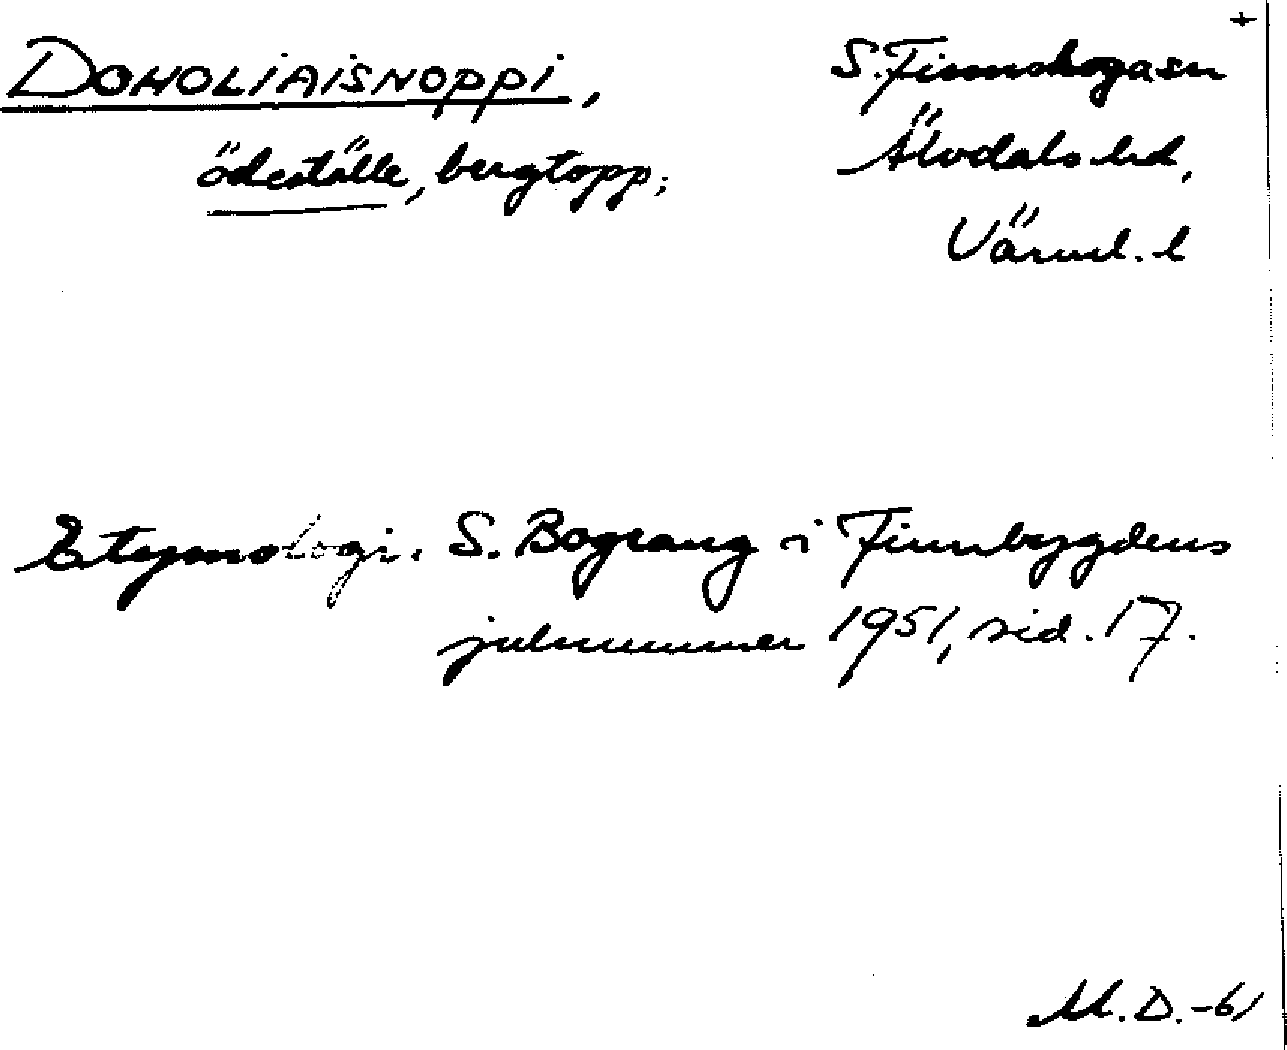 +
DOHOLIAISNOPPI, S. Finnskoga sn
ödeställe, bergtopp; Älvdals hd,
Värml. l
Etymologi. S. Bograng i Finnbygdens
julnummer 1951, sid. 17.
M. D. -61